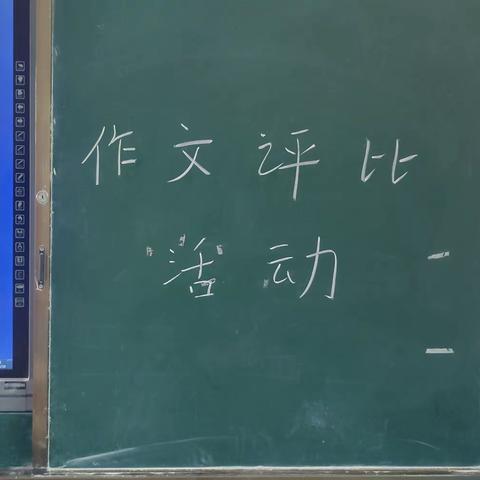 作文评比
活动